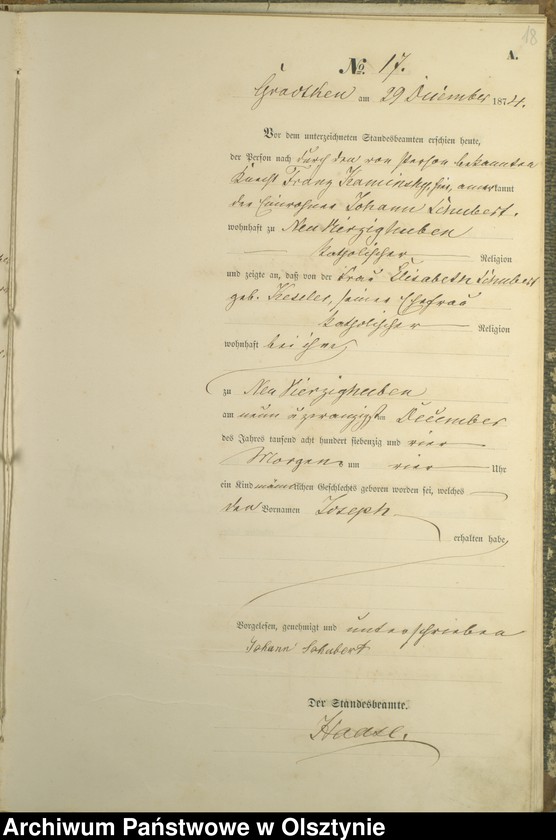 18
A.
No. 17.
Gradtken am 29 December 1874.
Vor dem unterzeichneten Standesbeamten erschien heute,
der Person nach durch den von Person bekannten
Knecht Franz Kaminsky, hier, anerkannt
der Einwohner Johann Schubert.
wohnhaft zu Neu Vierzighuben
katholischer Religion
und zeigte an, daß von der Frau Elisabeth Schubert
geb. Kessler, seiner Ehefrau
katholischer Religion
wohnhaft bei ihm
zu Neu Vierzighuben
am neun u zwanzigsten December
des Jahres tausend acht hundert siebenzig und vier
Morgens um vier Uhr
ein Kind männlichen Geschlechts geboren worden sei, welches
den Vornamen Joseph
erhalten habe,
Vorgelesen, genehmigt und unterschrieben
Johann Schubert
Der Standesbeamte.
Haase.
Archiwum Państwowe w Olsztynie